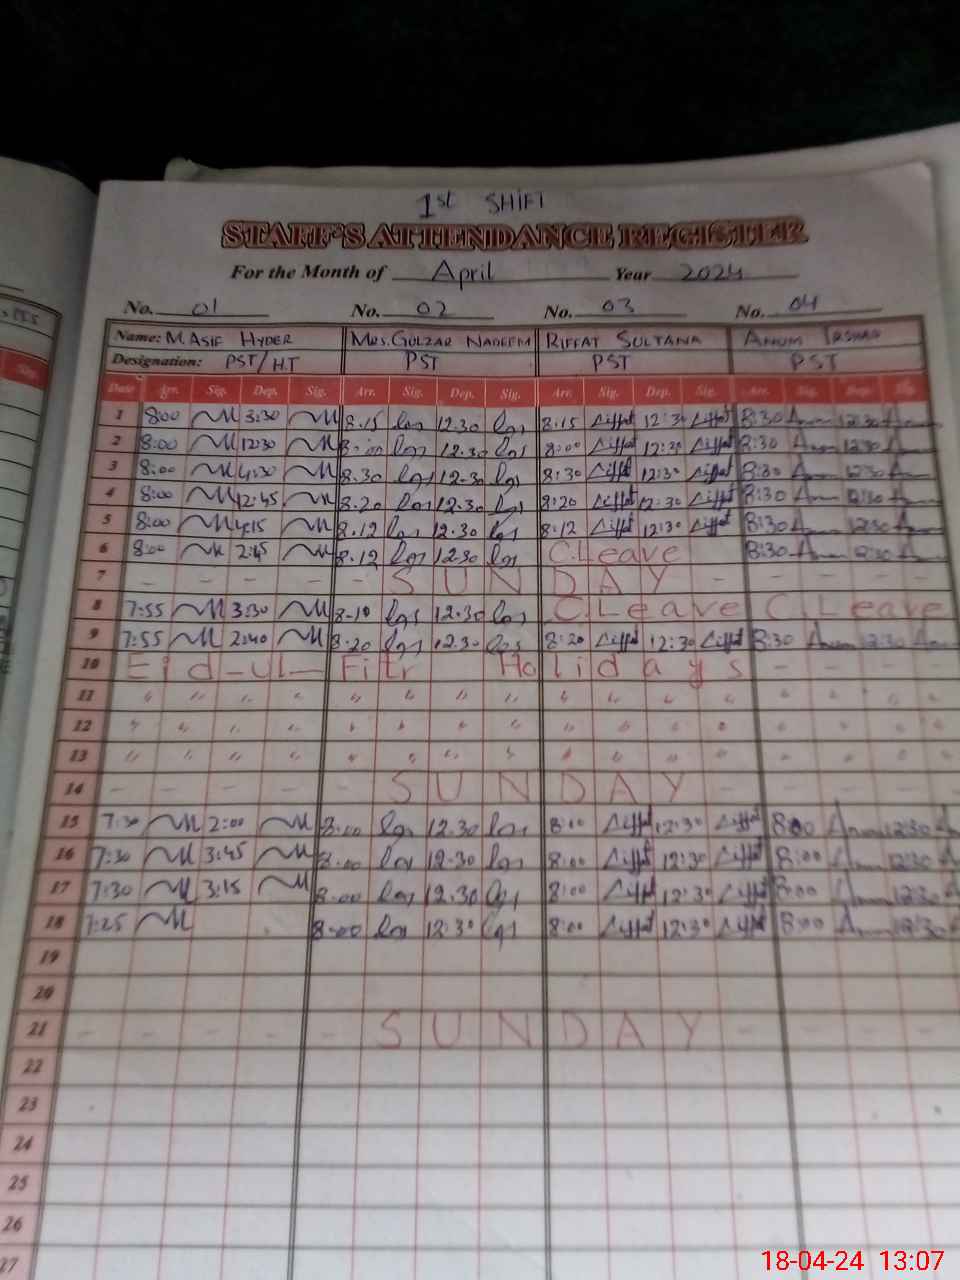 1st SHIFT
STAFF'S ATTENDANCE REGISTER
For the Month of April Year 2024
No. 01 No. 02 No. 03 No. 04
Name: M. ASIF HYDER MRS. GULZAR NADEEM RIFFAT SULTANA ANUM IRSHAD
Designation: PST/H.T PST PST PST
Date Arr. Sig. Dep. Sig. Arr. Sig. Dep. Sig. Arr. Sig. Dep. Sig. Arr. Sig. Dep. Sig.
1 8:00 3:30 8.15 12.30 8:15 12:30 8:30 12:30
2 8:00 12:30 8:00 12.30 8:00 12:30 8:30 12:30
3 8:00 4:30 8.30 12.30 8:30 12:30 8:30 12:30
4 8:00 12:45 8.20 12.30 8:20 12:30 8:30 12:30
5 8:00 4:15 8.12 12.30 8:12 12:30 8:30 12:30
6 8:00 2:45 8.12 12.30 C.Leave 8:30 12:30
7 - - - - - S U N D A Y - - - - -
8 7:55 3:30 8.10 12.30 C.Leave C.Leave
9 7:55 2:40 8.20 12.30 8:20 12:30 8:30 12:30
10 Eid-ul-Fitr Holidays - - - -
11 " " " " " " " " " " " " " " " "
12 " " " " " " " " " " " " " " " "
13 " " " " " " " " " " " " " " " "
14 - - - - - S U N D A Y - - - - -
15 7:30 2:00 8.10 12.30 8:10 12:30 8:00 12:30
16 7:30 3:45 8.00 12.30 8:00 12:30 8:00 12:30
17 7:30 3:15 8.00 12.30 8:00 12:30 8:00 12:30
18 7:25 8.00 12.30 8:00 12:30 8:00 12:30
19
20
21 - - - - - S U N D A Y - - - - -
22
23
24
25
26
27
18-04-24 13:07